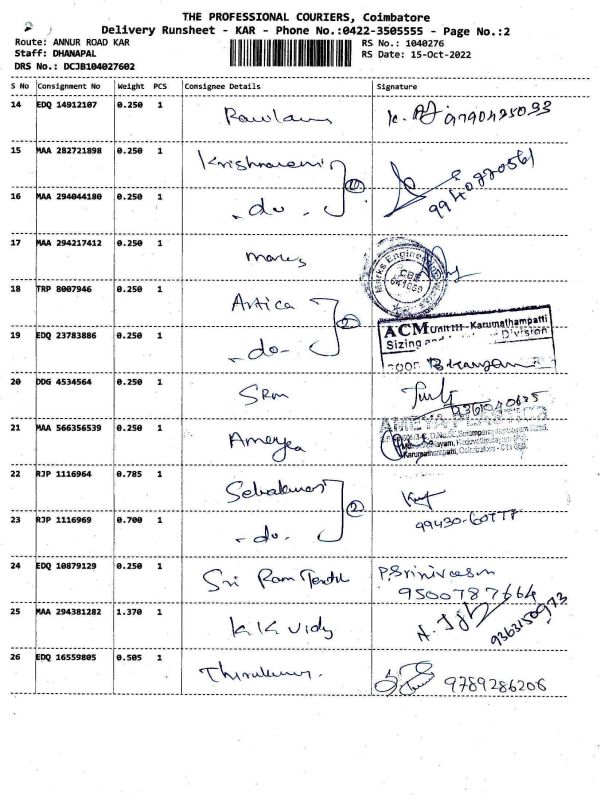 THE PROFESSIONAL COURIERS, Coimbatore
Delivery Runsheet - KAR - Phone No.:0422-3505555 - Page No.:2
Route: ANNUR ROAD KAR RS No.: 1040276
Staff: DHANAPAL RS Date: 15-Oct-2022
DRS No.: DCJB104027602
S No Consignment No Weight PCS Consignee Details Signature
14 EDQ 14912107 0.250 1 9790425093
15 MAA 282721898 0.250 1 Krishnaveni 9940220561
16 MAA 294044180 0.250 1 - do -
17 MAA 294217412 0.250 1 CBE
18 TRP 8007946 0.250 1 Artica
ACM Unit III - Karumathampatti
Sizing and Division
19 EDQ 23783886 0.250 1 - do -
20 DDG 4534564 0.250 1 SRM
21 MAA 566356539 0.250 1
Karumathampatti, Coimbatore -
22 RJP 1116964 0.785 1
23 RJP 1116969 0.700 1 - do - 2 99430-60777
24 EDQ 10879129 0.250 1 Sri Ram Textil P.Srinivasan
9500787664
25 MAA 294381282 1.370 1 KK Vidy 9363150973
26 EDQ 16559805 0.505 1 Thirukumar. 9789286206